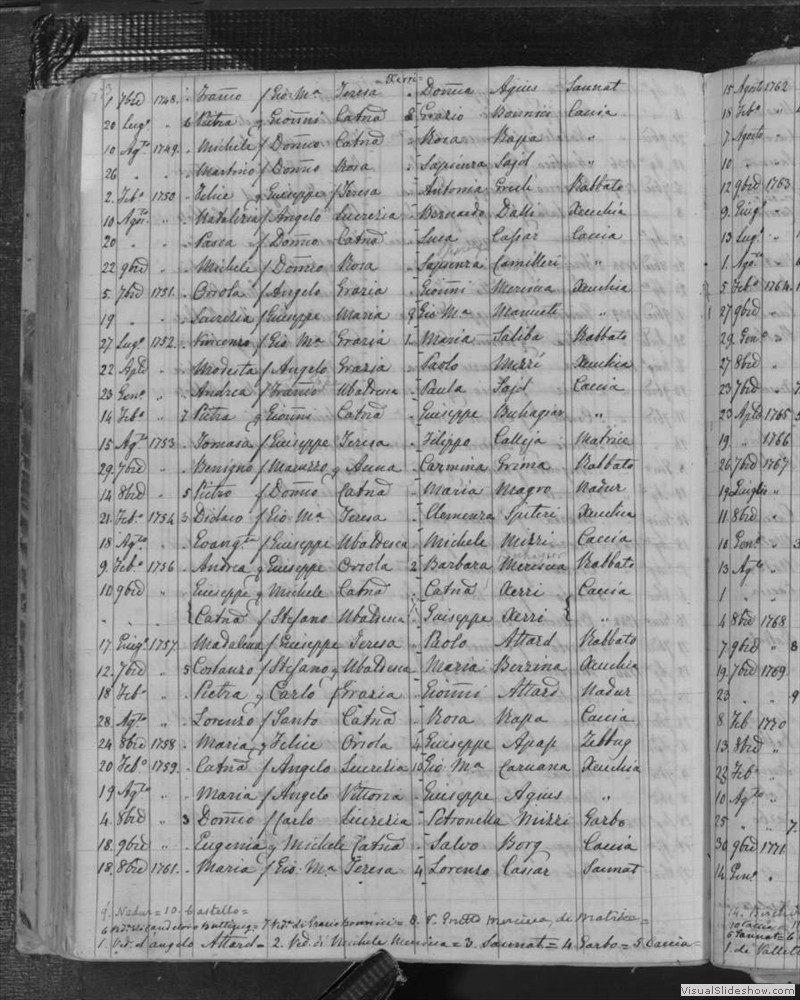 Xerri
1 7bre 1748. Franco f Gio Ma Teresa Domca Agius Sannat
20 Lugo " 6 Pietra y Gionni Catna 8 Grazio Bonnici Caccia
10 Agto 1749. Michele f Domco Catna Rosa Rapa "
26 " " Martino f Domco Rosa Sapienza Sajd "
2. Febo 1750 Felice y Giuseppe f Teresa Antonia Grech Rabbato
10 Agto " Madalena f Angelo Lucrezia Bernardo Dalli Xeuchia
20 " " Pasca f Domco Catna Luca Cassar Caccia
22 9bre " Michele f Domco Rosa Sapienza Camilleri "
5. 7bre 1751. Orsola f Angelo Grazia Gionni Mercieca Xeuchia
19 " " Lucrezia f Giuseppe Maria 9 Gio Ma Mamuti "
27 Lugo 1752. Vincenzo f Gio Ma Grazia 1. Maria Saliba Rabbato
22 Aple " Modesta f Angelo Grazia Paolo Mizzi Xeuchia
23 Geno " Andrea f Franco Ubaldesca Paula Sajd Caccia
14 Febo " 7 Pietra y Gionni Catna Giuseppe Buhagiar "
15 Agto 1753. Tomasa f Giuseppe Teresa Filippo Calleja Matrice
29. 7bre " Benigno f Maruzzo y Anna Carmina Grima Rabbato
14 8bre " 5 Pietro f Domco Catna Maria Magro Nadur
21. Febo 1754 3 Didaco f Gio Ma Teresa Clemenza Spiteri Xeuchia
18 Agto " Evangta f Giuseppe Ubaldesca Michele Mizzi Caccia
9. Febo 1756 Andrea y Giuseppe Orsola 2 Barbara Mercieca Rabbato
10 9bre " Giuseppe y Michele Catna Catna Xerri Caccia
" " " Catna f Stefano Ubaldesca Giuseppe Xerri "
17 Giugo 1757. Madalena f Giuseppe Teresa Paolo Attard Rabbato
12. 7bre " 5 Costanzo f Stefano y Ubaldesca Maria Bezzina Xeuchia
18 Febo " Pietra y Carlo f Grazia Gionni Attard Nadur
28. Agto " Lorenzo f Santo Catna Rosa Rapa Caccia
24 8bre 1758 Maria y Felice Orsola 4 Giuseppe Apap Zebbug
20 Febo 1759. Catna f Angelo Lucrezia 10 Gio Ma Caruana Xeuchia
19 Agto " Maria f Angelo Vittoria Giuseppe Agius "
4. 8bre " 3 Domco f Carlo Lucrezia Petronella Mizzi Garbo
18. 9bre " Eugenia y Michele Catna Salvo Borg Caccia
18. 8bre 1761. Maria f Gio Ma Teresa 4 Lorenzo Cassar Sannat
9. Nadur = 10. Castello =
6 Buttigieg = 7 Vido di Grazio Bonnici = 8. Mercieca, de Matrice =
1. Vid. d'Angelo Attard = 2. Vid. di Michele Mercieca = 3. Sannat = 4 Garbo = 5 Caccia =
15 Agosto 1762
18 Febo "
7 Agosto "
10 "
12 9bre 1763
9. Giugo "
13 Lugo "
1. Agto "
5 Febo 1764.
27 9bre "
29. Geno "
27 8bre "
23 7bre "
23 Aple 1765
19 " 1766
26 7bre 1767
19 Luglio "
11 8bre "
10 Geno "
13 Agto "
1 "
4 8bre 1768
7 9bre " 8
19. 7bre 1769.
23 " 9
8 Feb 1770
13 8bre "
22 Febo "
10 Agto "
25 " 7.
30 9bre 1771
14 Geno "
5 Sannat = 6
1. de Vallett
VisualSlideshow.com